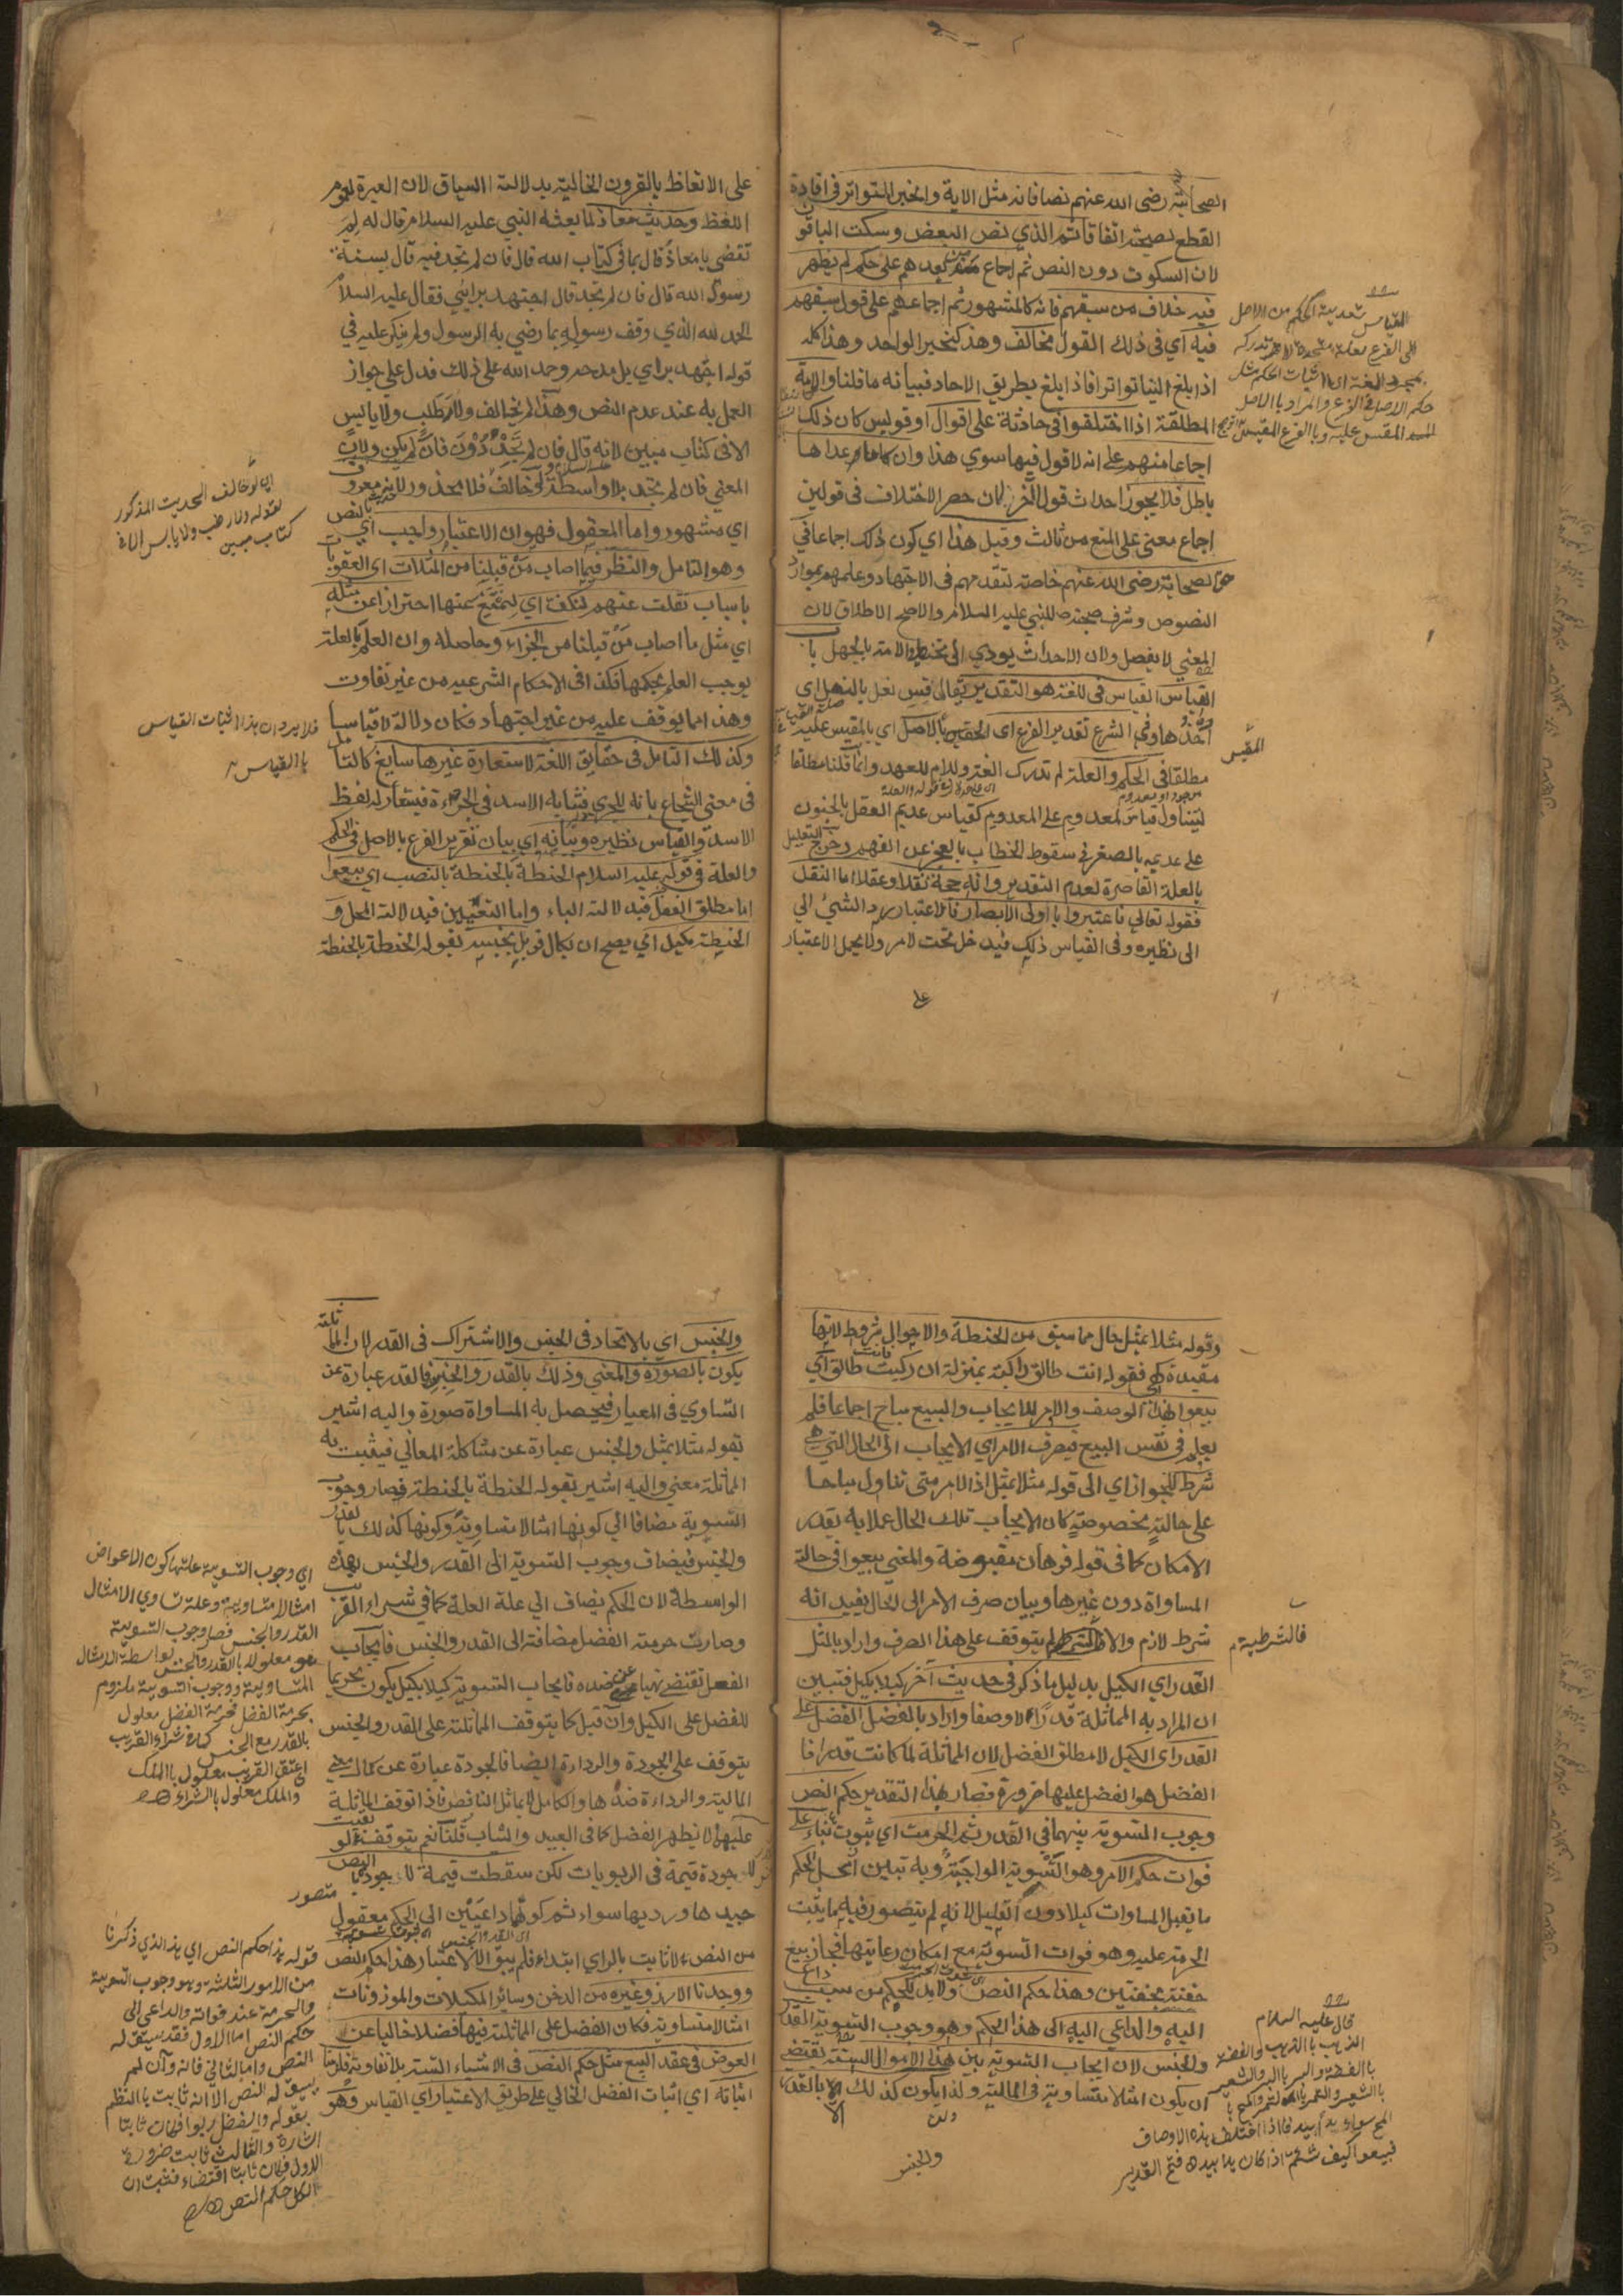 الصحابة رضى الله عنهم نصا فانه مثل الاية والخبر المتواتر فى افادة
القطع بصحته اتفاقا ثم الذي نص البعض وسكت الباقون
لان السكوت دون النص ثم اجماع من بعدهم على حكم لم يظهر
فيه خلاف من سبقهم فانه كالمشهور ثم اجماعهم على قول سبقهم
فيه اي فى ذلك القول مخالف وهذا كخبر الواحد وهذا كله
اذا بلغ الينا تواترا فاذا بلغ بطريق الاحاد فبيانه ما قلنا والامة
المطلقة اذا اختلفوا فى حادثة على اقوال او قولين كان ذلك
اجماعا منهم على انه لا قول فيها سوي هذا وان ما عداها
باطل فلا يجوز احداث قول آخر لان حصر الاختلاف فى قولين
اجماع معنى على المنع من ثالث وقيل هذا اي كون ذلك اجماعا في
حق الصحابة رضى الله عنهم خاصة لتقدمهم فى الاجتهاد وعلمهم بموارد
النصوص وشرف صحبته للنبي عليه السلام والاصح الاطلاق لان
المعني لا يفصل ولان الاحداث يودي الى تخطية الامة بالجهل باب
القياس القياس فى اللغة هو التقدير يقال قس نعل بالنعل اى
احذها وفى الشرع تقدير الفرع اى المقيس بالاصل اي بالمقيس عليه
مطلقا فى الحكم والعلة لم تدرك اللغة ولام للعهد وانما قلنا مطلقا
ليتناول قياس المعدوم على المعدوم كقياس عديم العقل بالجنون
على عديمه بالصغر في سقوط الخطاب بالعجز عن الفهم وخرج التعليل
بالعلة القاصرة لعدم التقدير وانه حجة نقلا وعقلا اما النقل
فقوله تعالي فاعتبروا يا اولى الابصار فالاعتبار رد الشئ الي
الى نظيره وفى القياس ذلك فيدخل تحت الامر ولا يحمل الاعتبار
على
القياس تعدية الحكم من الاصل
الى الفرع بعلة متحدة لا تدرك
بمجرد اللغة اى اثبات الحكم مثل
حكم الاصل فى الفرع والمراد بالاصل
المقيس عليه وبالفرع المقيس
المقيس
على الاتعاظ بالقرون الخالية بدلالة السياق لان العبرة لعموم
اللفظ وحديث معاذ لما بعثه النبي عليه السلام قال له لم
تقضى يا معاذ قال بما فى كتاب الله قال فان لم تجد فيه قال بسنة
رسول الله قال فان لم تجد قال اجتهد برايي فقال عليه السلام
الحمد لله الذي وفق رسوله بما رضي به الرسول ولم ينكر عليه في
قوله اجتهد براي بل مدحه وحمد الله على ذلك فدل علي جواز
العمل به عند عدم النص وهذا لم يخالف ولا رطب ولا يابس
الا فى كتاب مبين لانه قال فان لم تجد دون فان لم يكن ولان
المعني فان لم تجد بلا واسطة ولو خالف فلا محذور لانه معروف
اي مشهور واما المعقول فهو ان الاعتبار واجب اي بالنص
وهو التامل والنظر فيما اصاب من قبلنا من المثلات اى العقوبات
باسباب نقلت عنهم لنكف اي لنمتنع عنها احترازا عن مثله
اي مثل ما اصاب من قبلنا من الجزاء وحاصله وان العلم بالعلة
يوجب العلم بحكمها فكذا فى الاحكام الشرعيه من غير تفاوت
وهذا مما يوقف عليه من غير اجتهاد فكان دلالة لا قياسا
وكذلك التامل فى حقايق اللغة لاستعارة غيرها سايغ كالتامل
فى معنى الشجاع بانه للجري فشابه الاسد فى الجرءة فيستعار له لفظ
الاسد والقياس نظيره وبيانه اى بيان تقرير الفرع بالاصل فى الحكم
والعلة في قوله عليه السلام الحنطة بالحنطة بالنصب اي بيعوا
اما مطلق الفعل فبدلالة الباء واما التعيين فبدلالة المحل و
الحنطة مكيل اي يصح ان يكال قوبل بجنسه بقوله الحنطة بالحنطة
اى لو خالف الحديث المذكور
لقوله ولا رطب ولا يابس الا فى
كتاب مبين
فلا يرد ان هذا اثبات القياس
بالقياس
وقوله مثلا بمثل حال مما سبق من الحنطة والاحوال شروط لانها
مقيدة فقوله انت طالق راكبة بمنزلة ان ركبت فانت طالق اي
بيعوا بهذا الوصف والامر للايجاب والبيع مباح اجماعا فلم
يعلم فى نفس البيع فيصرف الامر اي الايجاب الى الحال التي هي
شرط للجواز اي الى قوله مثلا بمثل اذ الامر متى تناول مباحا
على حالة مخصوصة كان الايجاب تلك الحال عملا به بقدر
الامكان كما فى قوله فرهان مقبوضة والمعني بيعوا فى حالة
المساواة دون غيرها وبيان صرف الامر الى الحال يفيد انه
شرط لازم والا فالشرطية لم يتوقف على هذا الصرف واراد بالمثل
القدر اي الكيل بدليل ما ذكر في حديث آخر كيلا بكيل فتبين
ان المراد به المماثلة قدرا لا وصفا واراد بالفضل الفضل على
القدر اى الكيل لا مطلق الفضل لان المماثلة لما كانت قدرا فا
الفضل هو الفضل عليها ضرورة فصار بهذا التقدير حكم النص
وجوب التسوية بينهما فى القدر ثم الحرمة اي ثبوت بناء على
فوات حكم الامر وهو التسوية الواجبة وبه تبين ان محل الحكم
ما يقبل المساوات كيلا دون القليل لانه لم يتصور فيه ما يثبت
الحرمة عليه وهو فوات التسوية مع امكان رعايتها فجاز بيع
حفنة بحفنتين وهذا حكم النص ولا بد للحكم من سبب داع
اليه والداعي اليه اى هذا الحكم وهو وجوب التسوية القدر
والجنس لان ايجاب التسوية بين هذه الاموال الستة يقتضى
ان يكون امثالا متساوية في المالية ولذا يكون كذلك الا بالقدر
والجنس
فالشرطية
قال عليه السلام
الذهب بالذهب والفضة
بالفضة والبر بالبر والشعير
بالشعير والتمر بالتمر والملح با
الملح سواء يدا بيد فاذا اختلف هذه الاوصاف
فبيعوا كيف شئتم اذا كان يدا بيد فتح القدير
والجنس اى بالاتحاد فى الجنس والاشتراك فى القدر لان المماثلة
يكون بالصورة والمعني وذلك بالقدر والجنس فالقدر عبارة عن
التساوي فى المعيار فيحصل به المساواة صورة واليه اشير
بقوله مثلا بمثل والجنس عبارة عن مشاكلة المعاني فيثبت به
المماثلة معني واليه اشير بقوله الحنطة بالحنطة فصار وجوب
التسوية مضافا الي كونها امثالا متساوية وكونها كذلك بالقدر
والجنس فيضاف وجوب التسوية الى القدر والجنس بهذه
الواسطة لان الحكم يضاف الي علة العلة كما في شراء القريب
وصارت حرمة الفضل مضافة الى القدر والجنس فايجاب
الفعل تقتضى نهيا عن ضده فايجاب التسوية كيلا بكيل يكون تحريما
للفضل على الكيل وان قيل كما يتوقف المماثلة على القدر والجنس
يتوقف على الجودة والرداءة ايضا فالجودة عبارة عن كمال معنى
المالية والرداءة ضدها والكامل لا يماثل الناقص فاذا توقف المماثلة
عليهما لا يظهر الفضل كما فى العبيد والثياب قلنا نعم يتوقف لو بقيت
للجودة قيمة فى الربويات لكن سقطت قيمة الجودة بالنص
جيدها ورديها سواء ثم كونهما داعيين الى الحكم معقول
من النص لا ثابت بالراي ابتداء فلم يبق الا الاعتبار هذا حكم النص
ووجدنا الارز وغيره من الدخن وسائر المكيلات والموزونات
امثالا متساوية فكان الفضل على المماثلة فيها فضلا خاليا عن
العوض فى عقد البيع مثل حكم النص فى الاشياء الستة بلا تفاوت فلزمنا
اثباته اي اثبات الفضل الخالي على طريق الاعتبار اي القياس وهو
اي وجوب التسوية علتها كون الاعواض
امثالا متساوية وعلة تساوي الامثال
القدر والجنس فصار وجوب التسوية
معلولا بالقدر والجنس بواسطة الامثال
المتساوية ووجوب التسوية ملزوم
بحرمة الفضل فحرمة الفضل معلول
بالقدر مع الجنس كما فى شراء القريب
اعتق القريب معلول بالملك
والملك معلول بالشراء
متصور
قوله هذا حكم النص اي هذا الذي ذكرنا
من الامور الثلثة وهو وجوب التسوية
والحرمة عند فواته والداعى الى
حكم النص اما الاول فقد سيق له
النص واما الثاني فانه وان لم
يسق له النص الا انه ثابت بالنظم
بقوله والفضل ربوا فكان ثابتا
اشارة والثالث ثابت ضرورة
الاول فكان ثابتا اقتضاء فثبت ان
الكل حكم النص